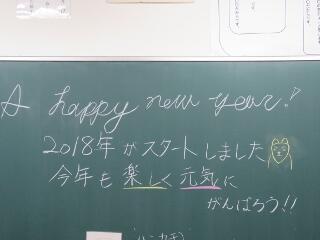 A happy new year!
2018年がスタートしました
今年も楽しく元気に
がんばろう!!